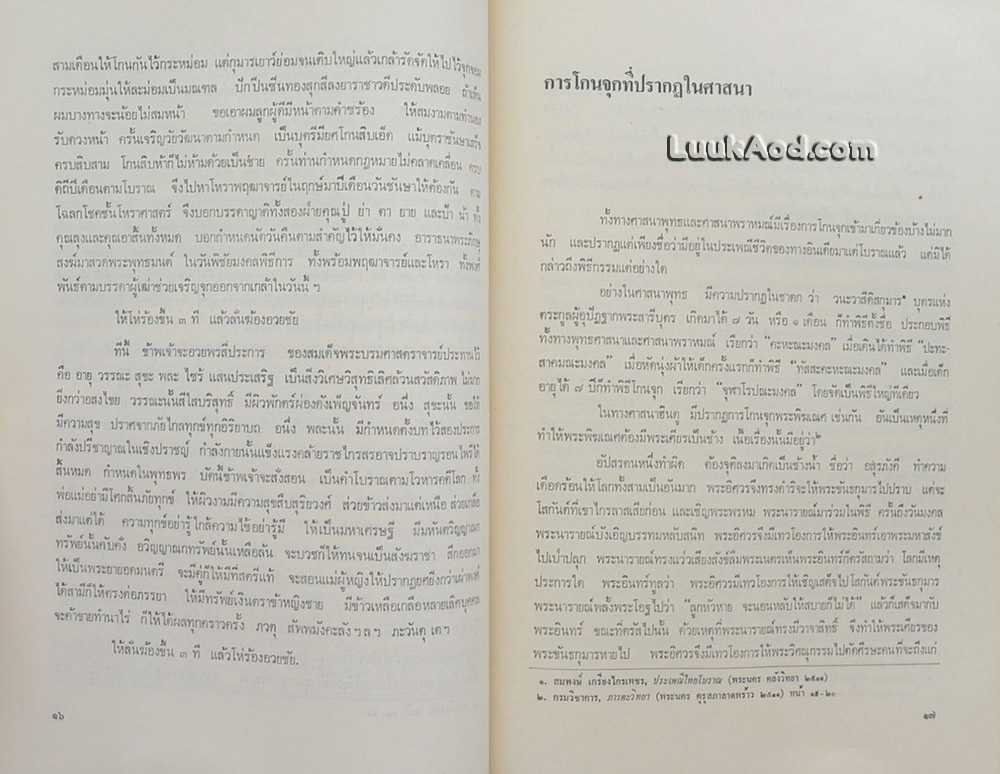 สามเดือนให้โกนกันไว้กระหม่อม แต่กุมารเยาว์ย่อมจนเติบใหญ่แล้วเกล้ารัดจัดให้ไปไว้จุกจอม
กระหม่อมมุ่นให้ละม่อมเป็นมณฑล ปักปิ่นชิ้นทองสุกสีลงยาราชาวดีประดับพลอย ถ้าเห็น
ผมบางทางจะน้อยไม่สมหน้า ขอเอาผมลูกผู้ดีมีหน้าตามคำชร้อง ให้สมงามตามทำนอง
รับดวงหน้า ครั้นเจริญวัยวัฒนาตามกำหนด เป็นบุตรีมียศโกนสิบเอ็ด แม้บุตราชันษาเสร็จ
ครบสิบสาม โกนสิบห้าก็ไม่ห้ามด้วยเป็นชาย ครั้นท่านกำหนดกฎหมายไม่คลาดเคลื่อน ครบ
ดิถีปีเดือนตามโบราณ จึงไปหาโหราพฤฒาจารย์ในฤกษ์มาปีเดือนวันชันษาให้ต้องกัน ตาม
โฉลกโชคชั้นโหราศาสตร์ จึงบอกบรรดาญาติทั้งสองฝ่ายคุณปู่ ย่า ตา ยาย และป้า น้า ทั้ง
คุณลุงและคุณอาสิ้นทั้งหมด บอกกำหนดนัดวันคืนตามสำคัญไว้ให้มั่นคง อาราธนาพระภิกษุ
สงฆ์มาสวดพระพุทธมนต์ ในวันพิชัยมงคลพิธีการ ทั้งพร้อมพฤฒาจารย์และโหรา ทั้งพงศ์
พันธ์ตามบรรดาผู้เฒ่าช่วยเจริญจุกออกจากเกล้าในวันนี้ ฯ
ให้โห่ร้องขึ้น ๓ ที แล้วลั่นฆ้องอวยชัย
ทีนี้ ข้าพเจ้าจะอวยพรสี่ประการ ของสมเด็จพระบรมศาสดราจารย์ประทานไว้
คือ อายุ วรรณะ สุขะ พละ ไซร้ แสนประเสริฐ เป็นสิ่งวิเศษวิสุทธิเลิศล้วนสวัสดิภาพ ไม่มาก
ยิ่งกว่าอสงไขย วรรณะนั้นสีใสบริสุทธิ์ มีผิวพักตร์ผ่องดังเพ็ญจันทร์ อนึ่ง สุขะนั้น ขอให้
มีความสุข ปราศจากภัยไกลทุกข์ทุกอิริยาบถ อนึ่ง พละนั้น มีกำหนดตั้งบทไว้สองประการ
กำลังปรีชาญาณในเชิงปราชญ์ กำลังกายนั้นแข็งแรงคล้ายราชไกรสรอาจปราบราญรอนไพรีให้
สิ้นหมด กำหนดในพุทธพร บัดนี้ข้าพเจ้าจะสั่งสอน เป็นคำโบราณตามโวหารคดีโลก ทั้ง
พ่อแม่อย่ามีโศกสิ้นภัยทุกข์ ให้ผิวงามมีความสุขสืบสุริยวงศ์ สวยข้าวส่งมาแต่เหนือ สวยเกลือ
ส่งมาแต่ใต้ ความทุกข์อย่ารู้ใกล้ความไข้อย่ารู้มี ให้เป็นมหาเศรษฐี มีมหันตวิญญาณก
ทรัพย์นั้นคับคั่ง อวิญญาณกทรัพย์นั้นเหลือล้น จะบวชก็ให้ทนจนเป็นสังฆราชา สึกออกมา
ให้เป็นพระยายอดมนตรี จะมีคู่ก็ให้มีที่สตรีแท้ จะสอนแม่ผู้หญิงให้ปรากฏยศยิ่งกว่าเผ่าพงศ์
ได้สามีก็ให้ตรงต่อภรรยา ให้มีทรัพย์เงินตราข้าหญิงชาย มีข้าวเหลือเกลือหลายเลิศบุคคล
จะค้าขายทำนาไร่ ก็ให้ได้ผลทุกคราวครั้ง ภวตุ สัพพมังคะลังฯลฯ ภะวันตุ เตฯ
ให้ลั่นฆ้องขึ้น ๓ ที แล้วโห่ร้องอวยชัย.
๑๖
การโกนจุกที่ปรากฏในศาสนา
LuukAod.com
ทั้งทางศาสนาพุทธและศาสนาพราหมณ์มีเรื่องการโกนจุกเข้ามาเกี่ยวข้องบ้างไม่มาก
นัก และปรากฏแต่เพียงชื่อว่ามีอยู่ในประเพณีชีวิตของทางอินเดียมาแต่โบราณแล้ว แต่มิได้
กล่าวถึงพิธีกรรมแต่อย่างใด
อย่างในศาสนาพุทธ มีความปรากฏในชาดก ว่า วนะวาสีติสกมาร๑ บุตรแห่ง
ตระกูลผู้อุปัฏฐากพระสารีบุตร เกิดมาได้ ๗ วัน หรือ ๑ เดือน ก็ทำพิธีตั้งชื่อ ประกอบพิธี
ทั้งทางพุทธศาสนาและศาสนาพราหมณ์ เรียกว่า “คะหะณะมงคล” เมื่อเดินได้ทำพิธี “ปะทะ-
สาคมณะมงคล” เมื่อหัดนุ่งผ้าให้เด็กครั้งแรกก็ทำพิธี “ทัสสะคะหะณะมงคล” และเมื่อเด็ก
อายุได้ ๗ ปีก็ทำพิธีโกนจุก เรียกว่า “จุฬาโรปณะมงคล” โดยจัดเป็นพิธีใหญ่ทีเดียว
ในทางศาสนาฮินดู มีปรากฏการโกนจุกพระพิฆเณศ เช่นกัน อันเป็นเหตุหนึ่งที่
ทำให้พระพิฆเณศต้องมีพระเศียรเป็นช้าง เนื้อเรื่องนั้นมีอยู่ว่า๒
อัปสรตนหนึ่งทำผิด ต้องจุติลงมาเกิดเป็นช้างน้ำ ชื่อว่า อสุรภังคี ทำความ
เดือดร้อนให้โลกทั้งสามเป็นอันมาก พระอิศวรจึงทรงดำริจะให้พระขันธกุมารไปปราบ แต่จะ
โสกันต์ที่เขาไกรลาสเสียก่อน และเชิญพระพรหม พระนารายณ์มาร่วมในพิธี ครั้นถึงวันมงคล
พระนารายณ์บังเอิญบรรทมหลับสนิท พระอิศวรจึงมีเทวโองการให้พระอินทร์เอาพระมหาสังข์
ไปเป่าปลุก พระนารายณ์ทรงแว่วเสียงสังข์ลืมพระเนตรเห็นพระอินทร์ก็ตรัสถามว่า โลกมีเหตุ
ประการใด พระอินทร์ทูลว่า พระอิศวรมีเทวโองการให้เชิญเสด็จไปโสกันต์พระขันธกุมาร
พระนารายณ์พลั้งพระโอฐไปว่า “ลูกหัวหาย จะนอนหลับให้สบายก็ไม่ได้” แล้วก็เสด็จมากับ
พระอินทร์ ขณะที่ตรัสไปนั้น ด้วยเหตุที่พระนารายณ์ทรงมีวาจาสิทธิ์ จึงทำให้พระเศียรของ
พระขันธกุมารหายไป พระอิศวรจึงมีเทวโองการให้พระวิศณุกรรมไปตัดศีรษะคนที่จะถึงแก่
๑. สมพงษ์ เกรียงไกรเพชร, ประเพณีไทยโบราณ (พระนคร คลังวิทยา ๒๕๑๑)
๒. กรมวิชาการ, ภารตะวิทยา (พระนคร คุรุสภาลาดพร้าว ๒๕๑๑) หน้า ๑๕-๒๐
๑๗